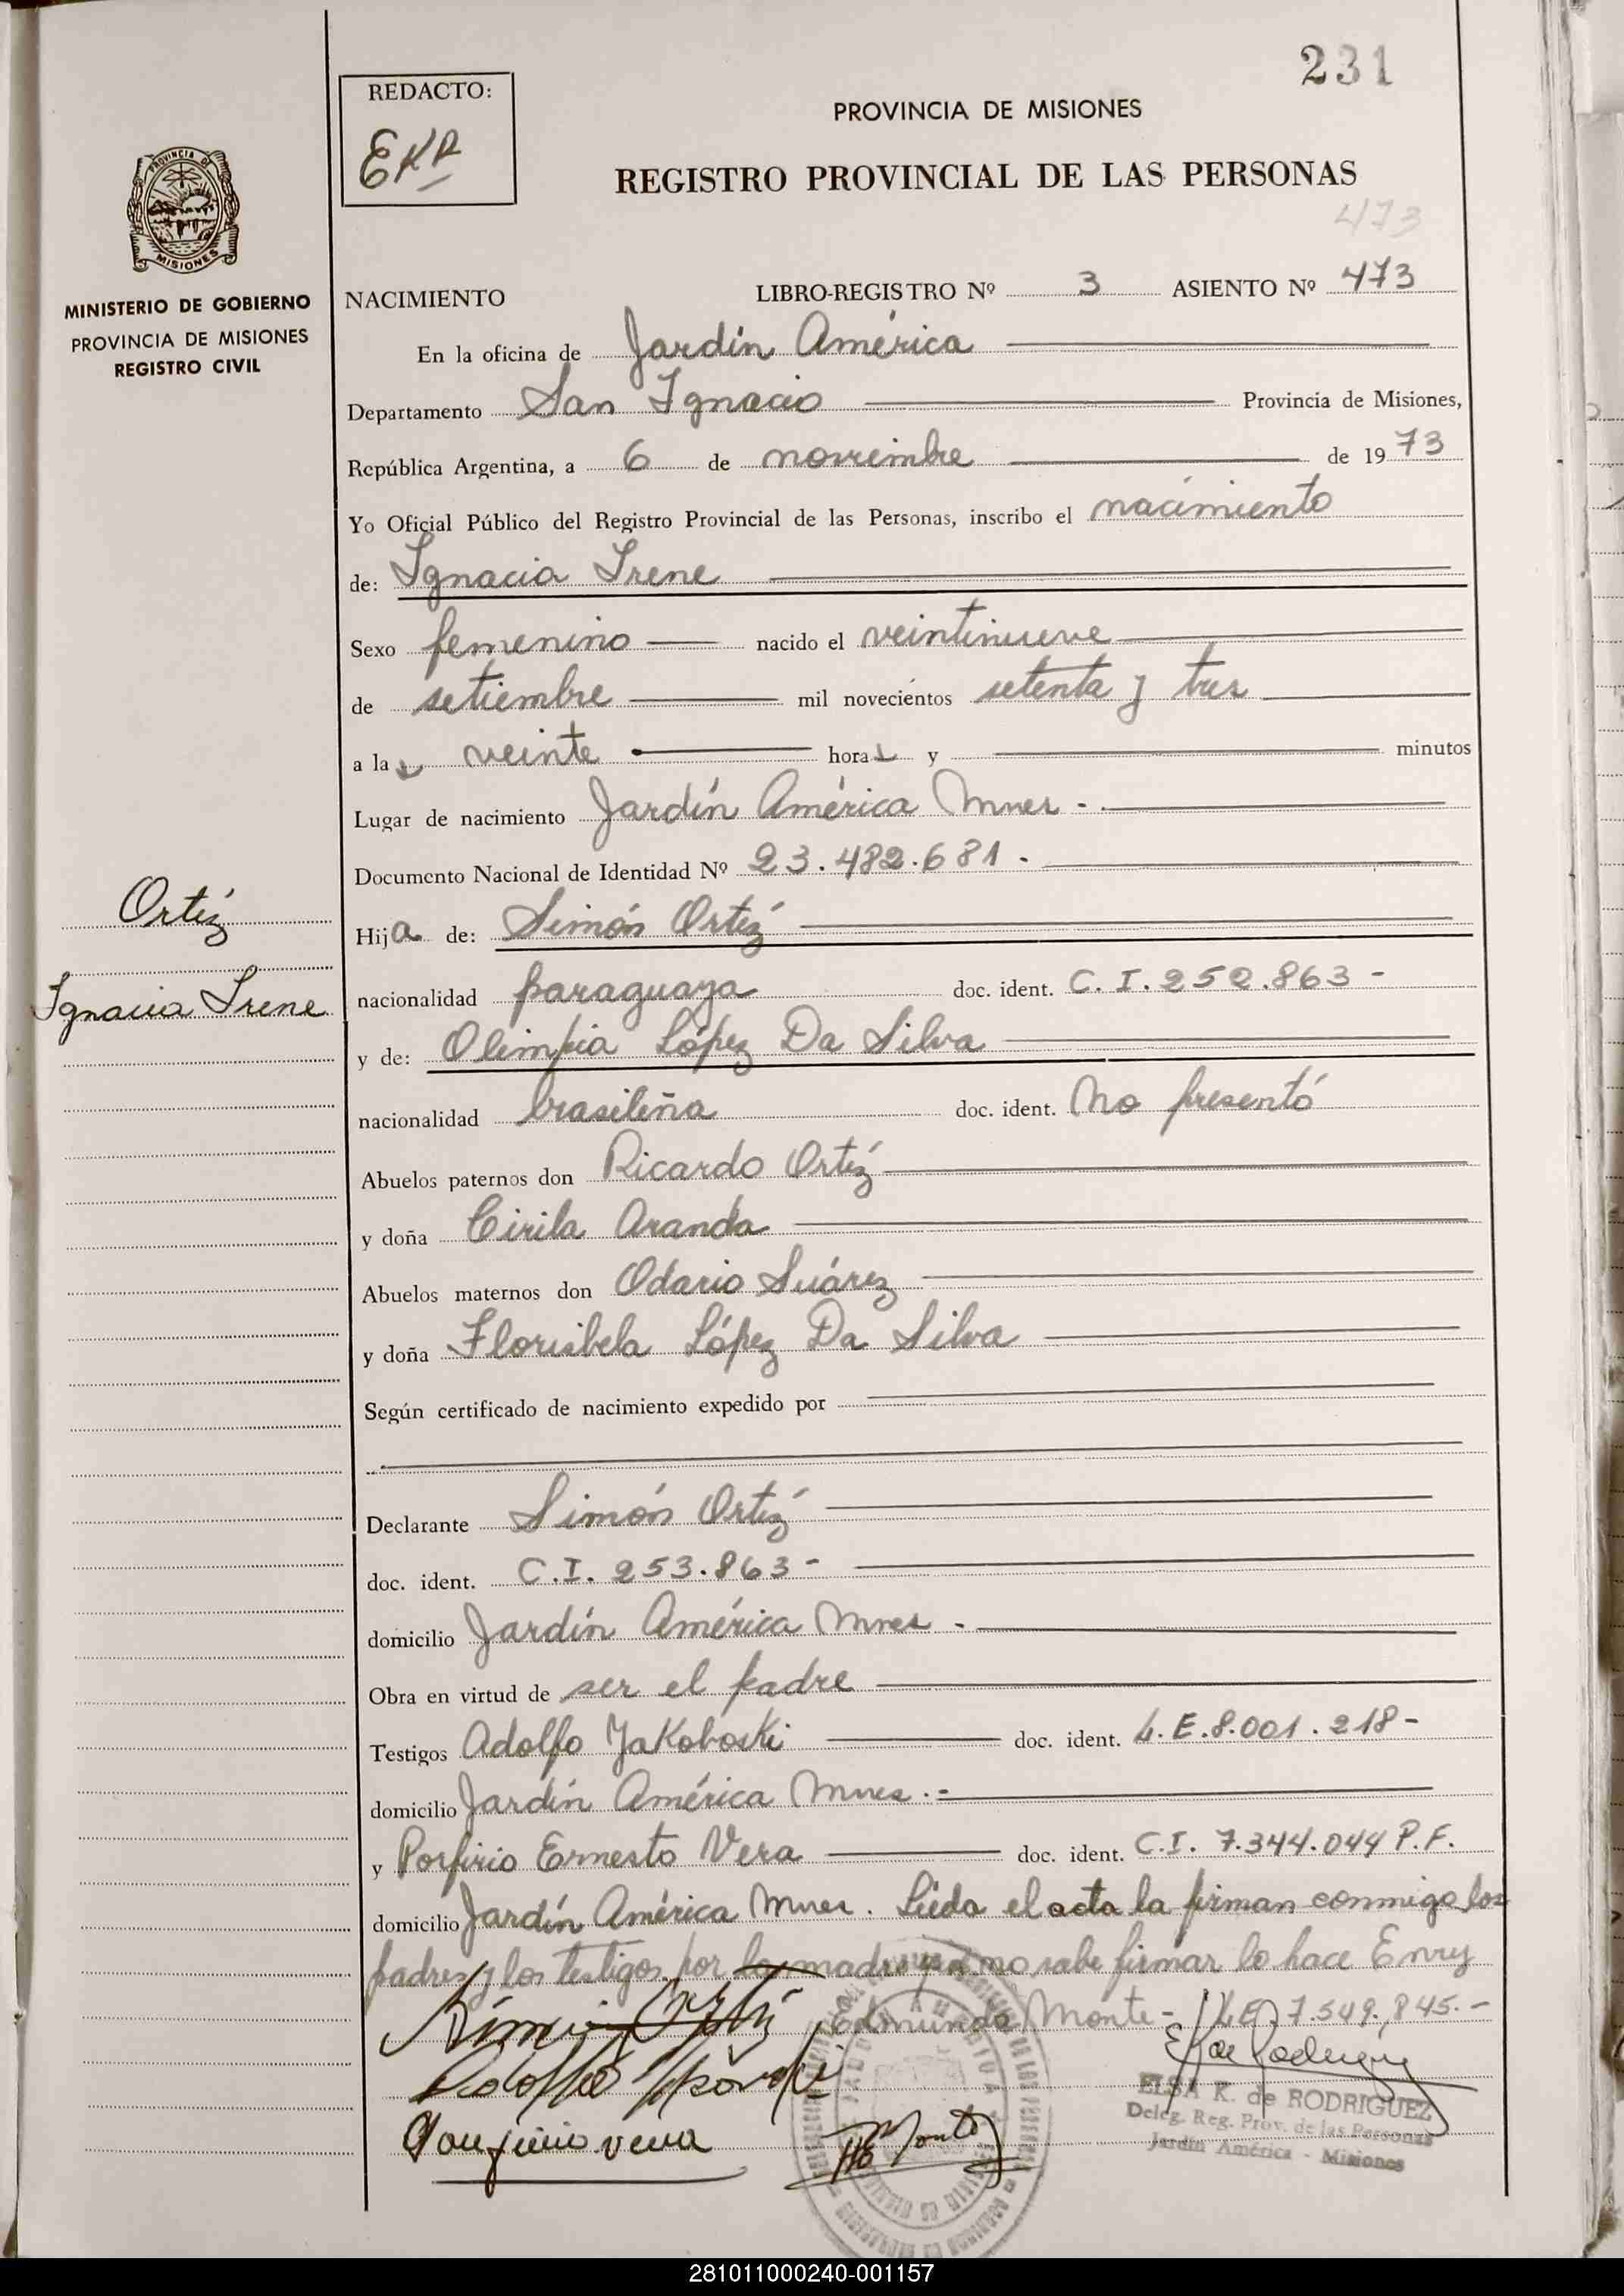 231
REDACTO:
EKR
PROVINCIA DE MISIONES
REGISTRO PROVINCIAL DE LAS PERSONAS
473
PROVINCIA DE
MISIONES
MINISTERIO DE GOBIERNO
PROVINCIA DE MISIONES
REGISTRO CIVIL
NACIMIENTO LIBRO-REGISTRO Nº 3 ASIENTO Nº 473
En la oficina de Jardín América
Departamento San Ignacio Provincia de Misiones,
República Argentina, a 6 de noviembre de 1973
Yo Oficial Público del Registro Provincial de las Personas, inscribo el nacimiento
de: Ignacia Irene
Sexo femenino nacido el veintinueve
de setiembre mil novecientos setenta y tres
a las veinte horas y minutos
Lugar de nacimiento Jardín América Mnes -.
Documento Nacional de Identidad Nº 23.482.681.
Ortíz
Hija de: Simón Ortíz
Ignacia Irene
nacionalidad paraguaya doc. ident. C. I. 252.863 -
y de: Olimpia López Da Silva
nacionalidad brasileña doc. ident. No presentó
Abuelos paternos don Ricardo Ortíz
y doña Cirila Aranda
Abuelos maternos don Odario Suárez
y doña Florisbela López Da Silva
Según certificado de nacimiento expedido por
Declarante Simón Ortíz
doc. ident. C.I. 253.863 -
domicilio Jardín América Mnes -
Obra en virtud de ser el padre
Testigos Adolfo Jakoboski doc. ident. L.E.8.001.218-
domicilio Jardín América Mnes.-
y Porfirio Ernesto Vera doc. ident. C.I. 7.344.044 P.F.
domicilio Jardín América Mnes. Liéda el acta la firman conmigo los
padres y los testigos por la madre que no sabe firmar lo hace Enry
Edmundo Monte - L.E. 7.549.845.-
ELSA K. de RODRIGUEZ
Deleg. Reg. Prov. de las Personas
Jardín América - Misiones
281011000240-001157